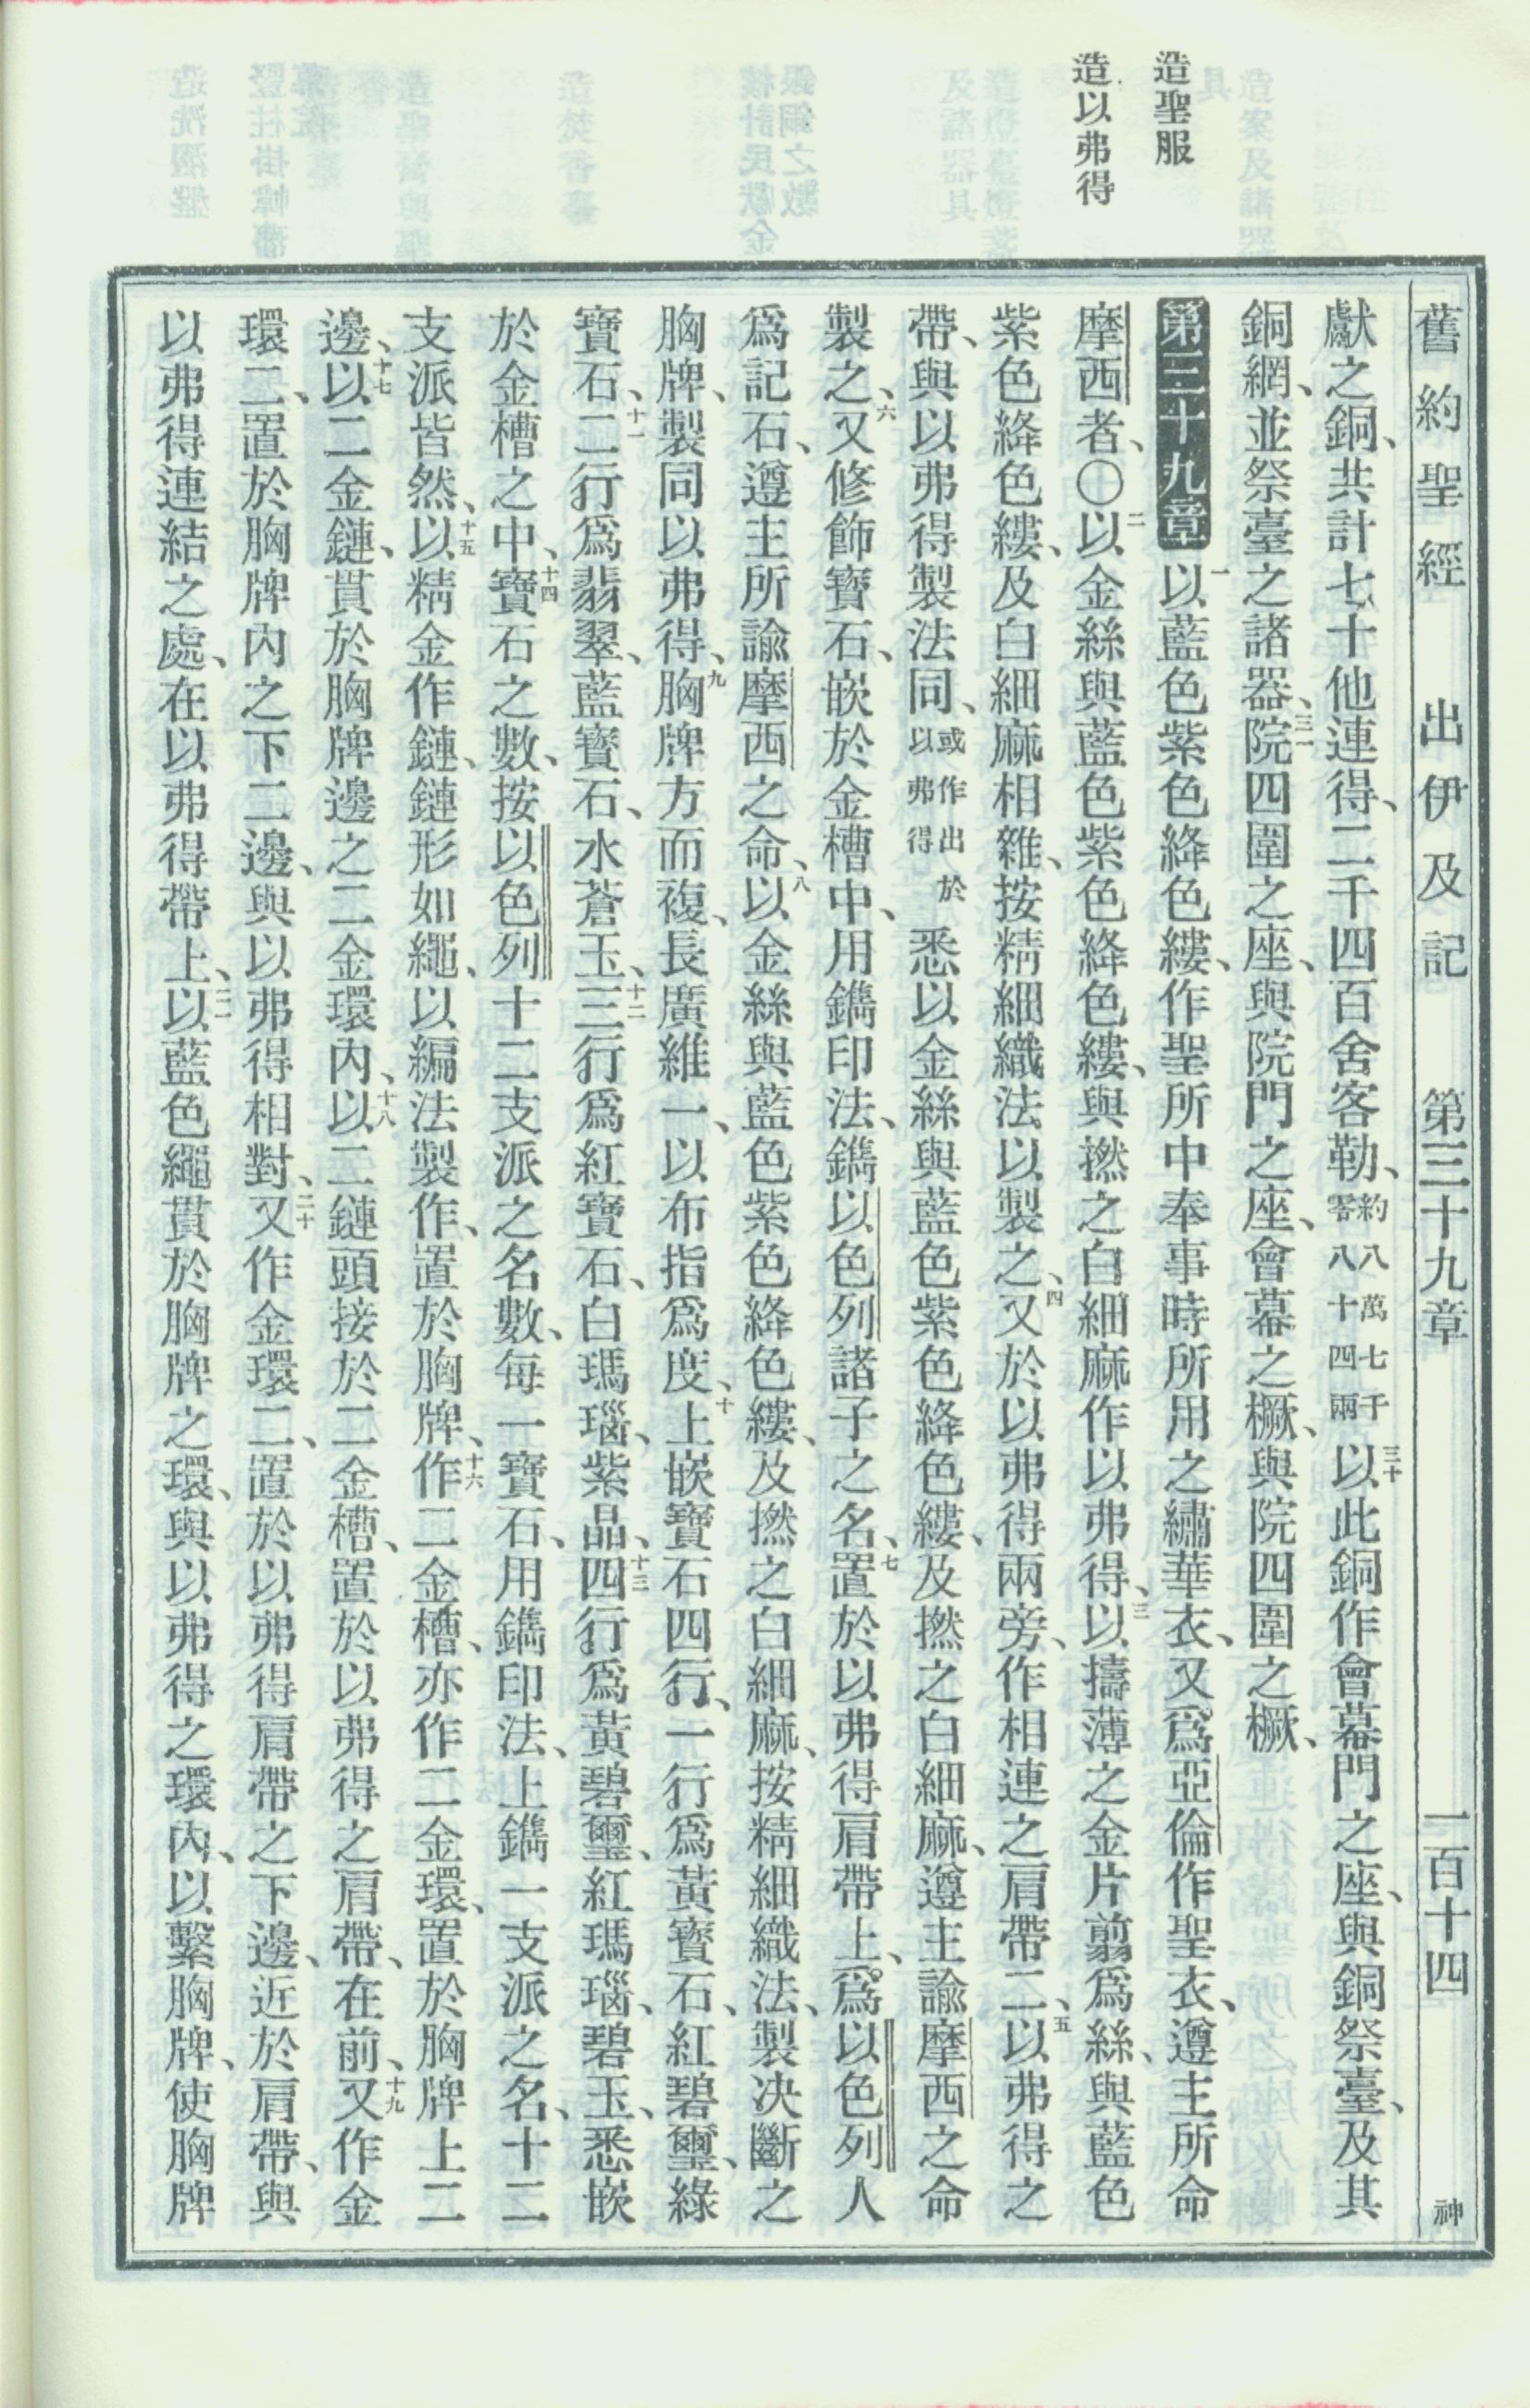 造聖服
造以弗得
舊約聖經 出伊及記 第三十九章 一百十四 神
獻之銅、共計七十他連得、二千四百舍客勒、約八萬七千零八十四兩三十以此銅作會幕門之座、與銅祭臺、及其
銅網、並祭臺之諸器、三一院四圍之座、與院門之座、會幕之橛、與院四圍之橛、
第三十九章 一以藍色紫色絳色縷、作聖所中奉事時所用之繡華衣、又爲亞倫作聖衣、遵主所命
摩西者、〇二以金絲與藍色紫色絳色縷、與撚之白細麻作以弗得、三以擣薄之金片翦爲絲、與藍色
紫色絳色縷、及白細麻相雜、按精細織法以製之、四又於以弗得兩旁、作相連之肩帶二、五以弗得之
帶、與以弗得製法同、或作出於以弗得悉以金絲與藍色紫色絳色縷、及撚之白細麻、遵主諭摩西之命
製之、六又修飾寶石、嵌於金槽中、用鐫印法、鐫以色列諸子之名、七置於以弗得肩帶上、爲以色列人
爲記石、遵主所諭摩西之命、八以金絲與藍色紫色絳色縷、及撚之白細麻、按精細織法、製決斷之
胸牌、製同以弗得、九胸牌方而複、長廣維一、以布指爲度、十上嵌寶石四行、一行爲黃寶石、紅碧璽、綠
寶石、十一二行爲翡翠、藍寶石、水蒼玉、十二三行爲紅寶石、白瑪瑙、紫晶、十三四行爲黃碧璽、紅瑪瑙、碧玉、悉嵌
於金槽之中、十四寶石之數、按以色列十二支派之名數、每一寶石、用鐫印法、上鐫一支派之名、十二
支派皆然、十五以精金作鏈、鏈形如繩、以編法製作、置於胸牌、十六作二金槽、亦作二金環、置於胸牌上二
邊、十七以二金鏈、貫於胸牌邊之二金環內、十八以二鏈頭接於二金槽、置於以弗得之肩帶、在前、十九又作金
環二、置於胸牌內之下二邊、與以弗得相對、二十又作金環二、置於以弗得肩帶之下邊、近於肩帶、與
以弗得連結之處、在以弗得帶上、二一以藍色繩貫於胸牌之環、與以弗得之環內、以繫胸牌、使胸牌